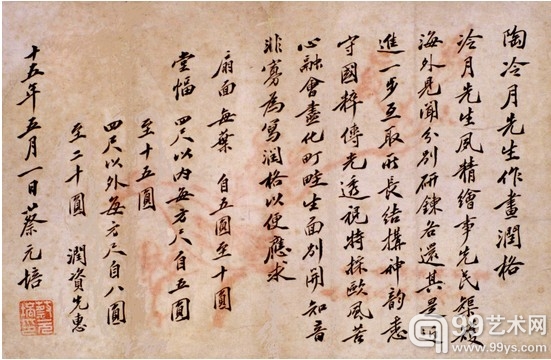 陶冷月先生作畫潤格
冷月先生夙精繪事先民矩矱
海外見聞分別研鍊各還其是近
進一步互取所長結構神韵悉
守國粹傳光透視特採歐風苦
心融會盡化町畦生面別開知音
非寡為寫潤格以便應求
扇面 每葉 自五圓至十圓
堂幅 四尺以內每方尺自五圓
至十五圓
四尺以外每方尺自八圓
至二十圓 潤資先惠
十五年五月一日 蔡元培
99艺术网
www.99ys.com